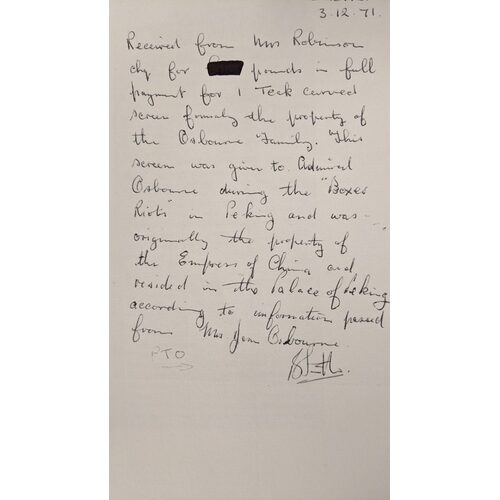 3.12.71.
Received from Mrs Robinson
chq for pounds in full
payment for 1 Teek carved
screen formaly the property of
the Osbourne "Family. This
screen was given to Admiral
Osbourne durning the "Boxer
Riots" in Peking and was
originally the property of
the Empress of China and
resided in the Palace of Peking
according to information passed
from Mrs Jean Osbourne.
PTO